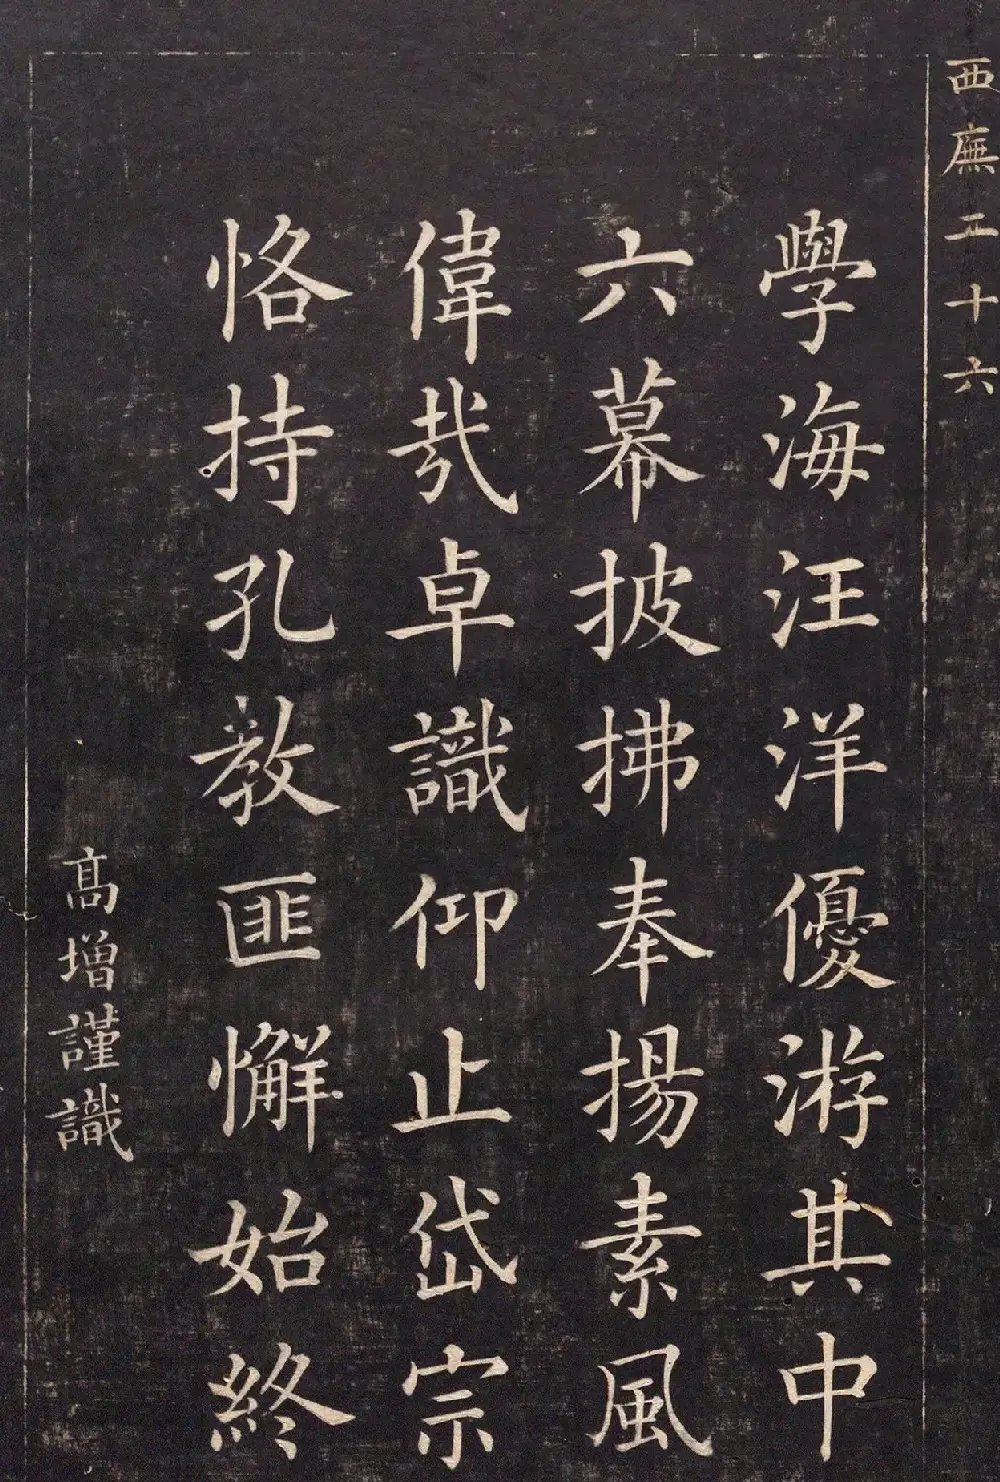 西廡五十六
學海汪洋優游其中
六幕披拂奉揚素風
偉哉卓識仰止岱宗
恪持孔教匪懈始終
高增謹識